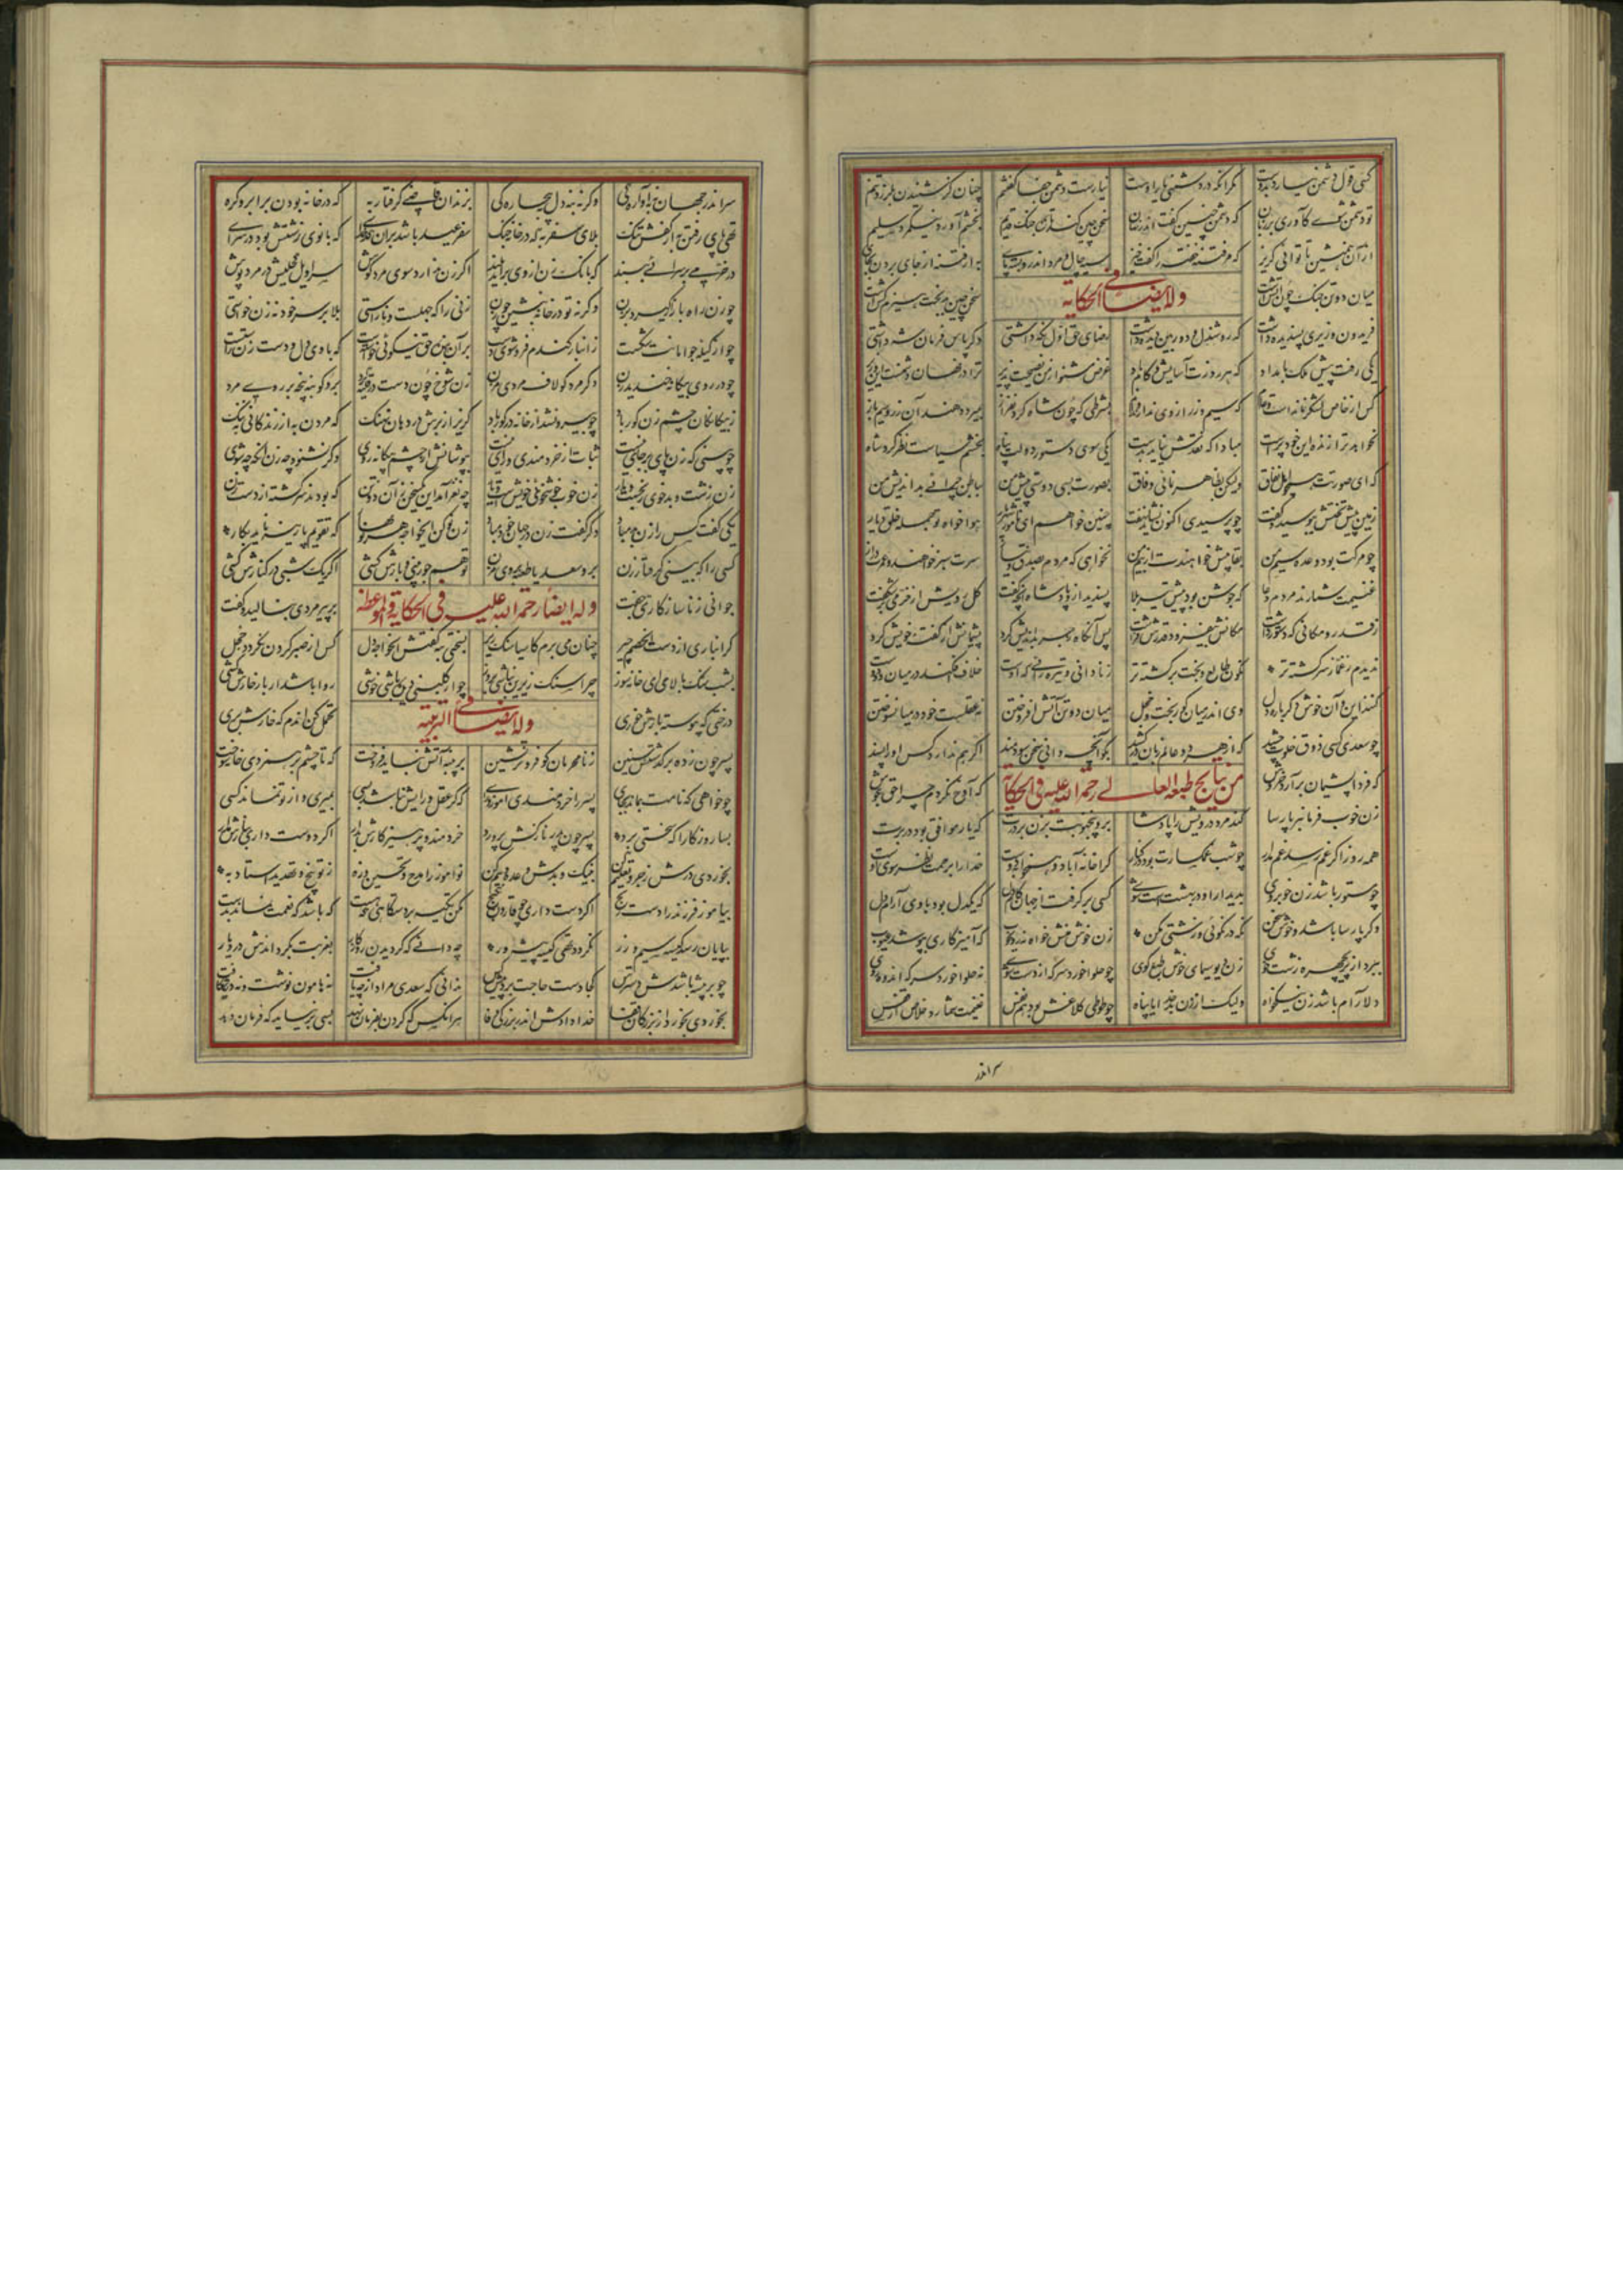 کسی قول دشمن نیارد بدوست مگر آنکه در دشمنی یار اوست نیارست دشمن جفا گفتنم چنان کز شنیدن بلرزد تنم
تو دشمن تری کاوری بر زبان که دشمن چنین گفت اندر نهان سخن چین کند تازه جنگ قدیم بخشم آورد نیکمرد سلیم
ازان همنشین تا توانی گریز که مر فتنه خفته را گفت خیز سیه چال و مرد اندرو بسته پای به از فتنه از جای بردن بجای
میان دو تن جنگ چون آتش است سخن چین بدبخت هیزم کش است
وله ایضا فی الحکایه
فریدون وزیری پسندیده داشت که روشندل و دوربین دیده داشت رضای حق اول نگه داشتی دگر پاس فرمان شه داشتی
یکی رفت پیش ملک بامداد که هر روزت آسایش و کام باد غرض مشنو از من نصیحت پذیر ترا در نهان دشمنست این وزیر
کس از خاص لشکر نمانده است و عام که سیم و زر از وی ندارد بوام بشرطی که چون شاه گردن فراز بمیرد دهند آن زر و سیم باز
نخواهد ترا زنده این خودپرست مبادا که نقدش نیاید بدست یکی سوی دستور دولت پناه بچشم سیاست نظر کرد شاه
که ای صورت نفاق ولیکن بظاهر وفاق بصورت بسی دوستی پیش من بباطن چرائی بداندیش من
زمین پیش تختش ببوسید و گفت چو پرسیدی اکنون نشاید نهفت چنین خواهم ای نامور شهریار هواخواه تو جمله خلق دیار
چو مرگت بود وعده سیم من بقا بیش خواهندت از بیم من نخواهی که مردم بصدق و نیاز سرت سبز خواهند و عمرت دراز
غنیمت شمارند مردم دعا که جوشن بود پیش تیر بلا پسندید ازو پادشاه آنچه گفت گل رویش از خرمی برشکفت
ز قدر و مکانی که دستور داشت مکانش بیفزود و قدرش فراشت پس آنگاه زجر بداندیش کرد پشیمانش از گفت خویش کرد
ندیدم ز غماز سرگشته تر نگون طالع و بخت برگشته تر ز نادانی و تیره رائی که اوست خلاف افکند در میان دو دوست
کنند این و آن خوش دگرباره دل وی اندر میان کوربخت و خجل میان دو تن آتش افروختن نه عقلست خود در میان سوختن
چو سعدی کسی ذوق خلوت چشید که از هر دو عالم زبان درکشید بگو آنچه دانی سخن سودمند اگر هم ندارد کس او را پسند
که فردا پشیمان برآرد خروش که آوخ نکردم چرا حق بگوش
من نتایج طبعه العالی رحمة الله علیه فی الحکایة
زن خوب فرمانبر پارسا کند مرد درویش را پادشا برو پنج نوبت بزن بر درت که یار موافق بود در برت
همه روز اگر غم رسد غم مدار چو شب غمگسارت بود در کنار کرا خانه آباد و همخوابه دوست خدا را برحمت نظر سوی اوست
چو مستور باشد زن خوبروی بدیدار او در بهشت است شوی کسی برگرفت از جهان کام دل که یکدل بود با وی آرام دل
وگر پارسا باشد و خوش سخن نگه در نکوئی و زشتی مکن زن خوش منش خواه نه خوب که آمیزگاری بپوشد عیوب
ببرد از پریچهره زشت خوی زن دیوسیمای خوش طبع گوی چو حلوا خورد سرکه از دست شوی نه حلوا خورد سرکه اندوده روی
دلارام باشد زن نیکخواه ولیک از زن بد خدایا پناه چو طوطی کلاغش بود هم نفس غنیمت شمارد خلاص از قفس
سر اندر
سر اندر جهان نه بآوارگی وگرنه بنه دل به بیچارگی بزندان قاضی گرفتار به که در خانه بودن برابرو گره
تهی پای رفتن به از کفش تنگ بلای سفر به که در خانه جنگ سفر عید باشد بران کدخدای که بانوی زشتش بود در سرای
در خرمی بر سرائی ببند که بانگ زن از وی برآید بلند اگر زن ندارد سوی مرد گوش سراویل کحلیش در مرد پوش
چو زن راه بازار گیرد بزن وگرنه تو در خانه بنشین چو زن زنی را که جهلست و ناراستی بلا بر سر خود نه زن خواستی
چو در کیله جو امانت شکست ز انبار گندم فرو شوی دست بر آن بنده حق نیکوئی خواستست که با وی دل و دست زن راستست
چو در روی بیگانه خندید زن دگر مرد گو لاف مردی مزن زن شوخ چون دست در قلیه کرد برو گو بنه پنجه بر روی مرد
ز بیگانگان چشم زن کور باد چو بیرون شد از خانه در گور باد گریز از برش در دهان نهنگ که مردن به از زندگانی بننگ
چو بینی که زن پای بر جای نیست ثبات از خردمندی و رای نیست بپوشانش از چشم بیگانه روی وگر نشنود چه زن آنگه چه شوی
زن زشت و بدخوی رنجست و بار زن خوب خوشخوی چه نغز آمد این یک سخن زان دو تن که بودند سرگشته از دست زن
یکی گفت کس را زن بد مباد دگر گفت زن در جهان خود مباد زن نو کن ای خواجه هر نوبهار که تقویم پارینه ناید بکار
کسی را که بینی گرفتار زن برو سعدیا طعنه بر وی مزن تو هم جور بینی و بارش کشی اگر یک شبی در کنارش کشی
وله ایضا رحمة الله علیه فی الحکایة والموعظه
جوانی ز ناسازگاری جفت بر پیرمردی بنالید و گفت
گرانباری از دست این خصم چیر چنان می برم کاسیا سنگ زیر بسختی بنه گفتش ای خواجه دل کس از صبر کردن نگردد خجل
بشب سنگ بالائی ای خانه سوز چرا سنگ زیرین نباشی بروز چو از گلبنی دیده باشی خوشی روا باشد ار بار خارش کشی
درختی که پیوسته بارش خوری تحمل کن آندم که خارش بری
وله ایضا فی التربیة
پسر چون ز ده برگذشتش سنین ز نامحرمان گو فروتر نشین بر پنبه آتش نباید فروخت که تا چشم بر هم زنی خانه سوخت
چو خواهی که نامت بماند بجای پسر را خردمندی آموز و رای که گر عقل و رایش نباشد بسی بمیری و از تو نماند کسی
بسا روزگارا که سختی برد پسر چون پدر نازکش پرورد خردمند و پرهیزگارش برآر اگر دوست داری بنازش مدار
بخردی درش زجر و تعلیم کن بنیک و بدش وعده و بیم کن نوآموز را مدح و تحسین و زه ز توبیخ و تهدید استاد به
بیاموز فرزند را دسترنج اگر دست داری چو قارون بگنج مکن تکیه بر دستگاهی که هست که باشد که نعمت نماند بدست
بپایان رسد کیسه سیم و زر نگردد تهی کیسه پیشه ور چه دانی که گردیدن روزگار بغربت بگرداندش در دیار
چو بر پیشه باشدش دسترس کجا دست حاجت برد پیش کس ندانی که سعدی مراد از چه یافت نه هامون نوشت و نه دریا شکافت
بخردی بخورد از بزرگان قفا خدا دادش اندر بزرگی صفا هر آنکس که گردن بفرمان نهد بسی برنیاید که فرمان دهد